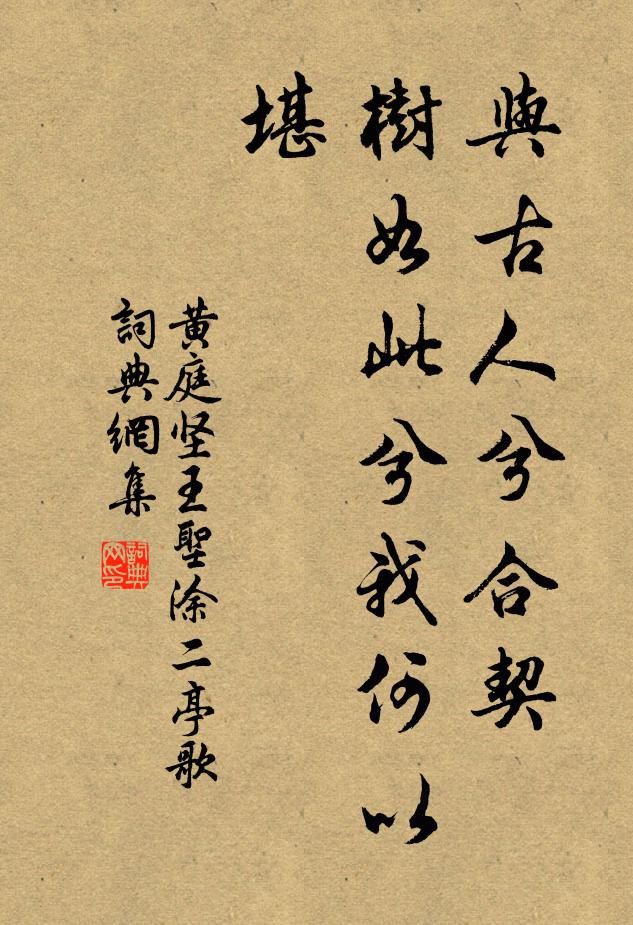 與古人兮合契
樹如此兮我何以
堪
黄庭坚王聖涂二亭歌
詞典網集
詞典網印